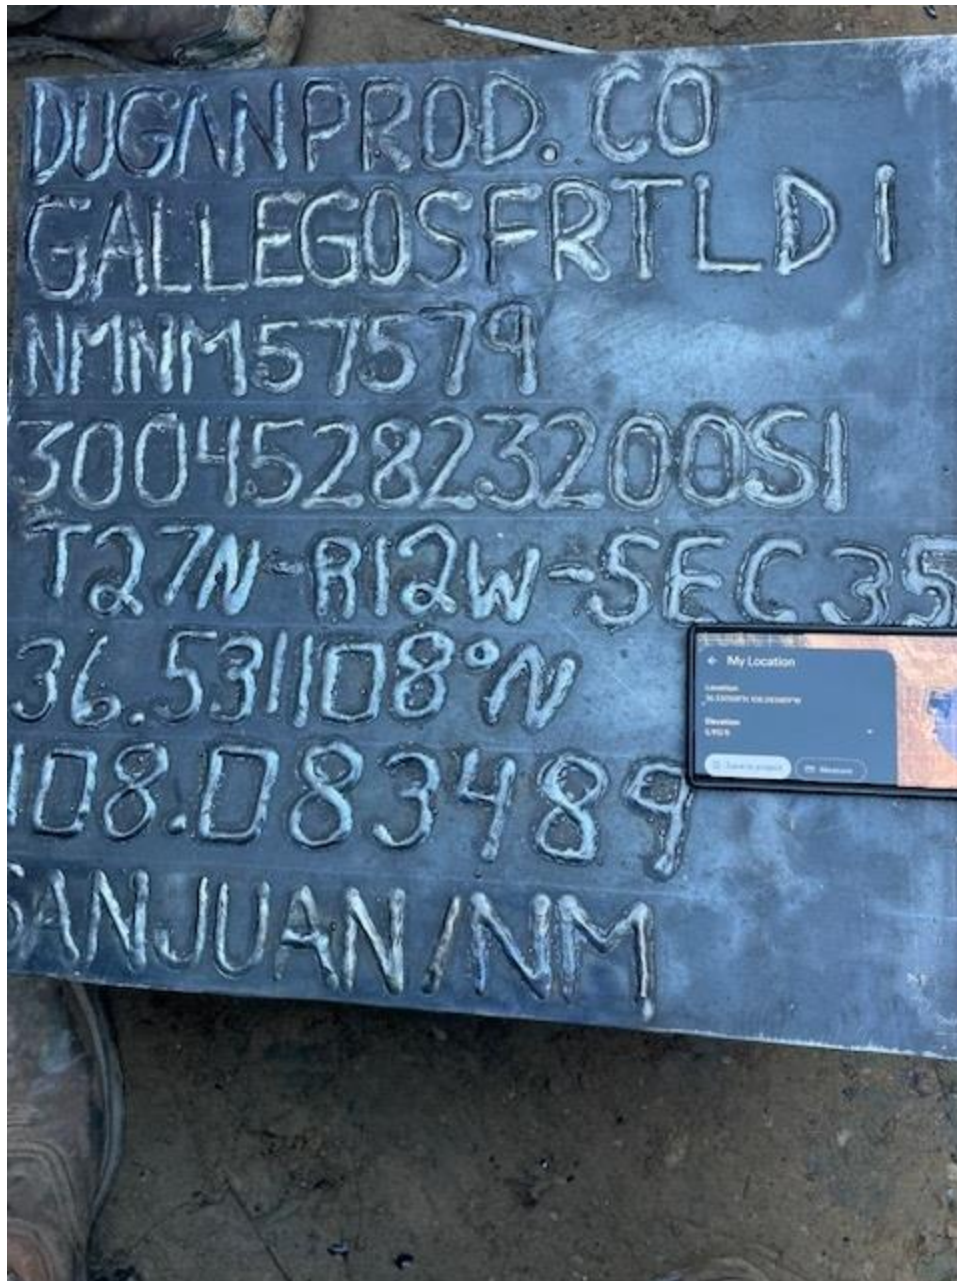 DUGAN PROD. CO
GALLEGOS FRTLD 1
NMNM57579
300452823200S1
T27N-R12W-SEC 35
36.531108°N
108.083489
SAN JUAN/NM
My Location
Location
Elevation